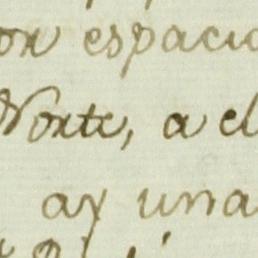 por espacio
Norte, a el
ay una